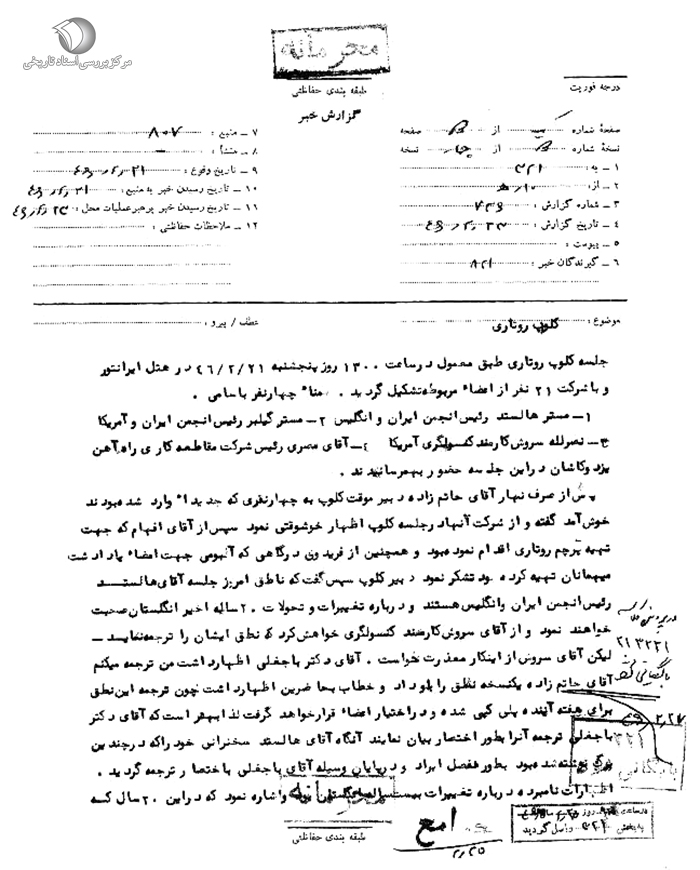 مرکز بررسی اسناد تاریخی
محرمانه
طبقه بندی حفاظتی
گزارش خبر
درجه فوریت
صفحهٔ شماره یک از صفحه
نسخهٔ شماره از چهار نسخه
۱ – به : ۳۲۱
۲ – از : ۱۰ ه‍
۳ – شماره گزارش : ۷۴۹
۴ – تاریخ گزارش :
۵ – پیوست :
۶ – گیرندگان خبر : ۸۲۱
۷ – منبع : ۸۰۷
۸ – منشأ :
۹ – تاریخ وقوع :
۱۰ – تاریخ رسیدن خبر به منبع :
۱۱ – تاریخ رسیدن خبر برهبر عملیات محل :
۱۲ – ملاحظات حفاظتی :
موضوع : کلوپ روتاری
عطف / پیرو :
جلسه کلوپ روتاری طبق معمول در ساعت ۱۳۰۰ روز پنجشنبه ۴۶/۲/۲۱ در هتل ایرانتور
و با شرکت ۲۱ نفر از اعضاء مربوطه تشکیل گردید . ضمناً چهار نفر باسامی .
۱– مستر هالستد رئیس انجمن ایران و انگلیس ۲– مستر گیلبر رئیس انجمن ایران و آمریکا
۳– نصرالله سروش کارمند کنسولگری آمریکا ٤– آقای مصری رئیس شرکت مقاطعه کاری راه آهن
یزد و کاشان در این جلسه حضور بهم رسانیدند .
پس از صرف نهار آقای حاتم زاده دبیر موقت کلوپ به چهار نفری که جدیداً وارد شده بودند
خوش آمد گفته و از شرکت آنها در جلسه کلوپ اظهار خوشوقتی نمود سپس از آقای افهام که جهت
تهیه پرچم روتاری اقدام نموده بود و همچنین از فریدون درگاهی که آلبومی جهت امضاء یادداشت
میهمانان تهیه کرده بود تشکر نمود دبیر کلوپ سپس گفت که ناطق امروز جلسه آقای هالستد
رئیس انجمن ایران وانگلیس هستند و درباره تغییرات و تحولات ۲۰ ساله اخیر انگلستان صحبت
خواهند نمود و از آقای سروش کارمند کنسولگری خواهش کرد که نطق ایشان را ترجمه نماید –
لیکن آقای سروش از اینکار معذرت خواست . آقای دکتر باجغلی اظهار داشت من ترجمه میکنم
آقای حاتم زاده یکنسخه نطق را باو داد و خطاب بحاضرین اظهار داشت چون ترجمه این نطق
برای هفته آینده پلی کپی شده و در اختیار اعضاء قرار خواهد گرفت لذا بهتر است که آقای دکتر
باجغلی ترجمه آنرا بطور اختصار بیان نمایند آنگاه آقای هالستد سخنرانی خود را که در چندین
برگ نوشته شده بود بطور مفصل ایراد و در پایان وسیله آقای باجغلی باختصار ترجمه گردید .
اظهارات نامبرده درباره تغییرات بیست ساله انگلستان بود واشاره نمود که در این ۲۰ سال کسه
۲۱۳۲۲۱
بایگانی
۳۲۱
محرمانه
طبقه بندی حفاظتی
به بخش ۳۲۱ واصل گردید